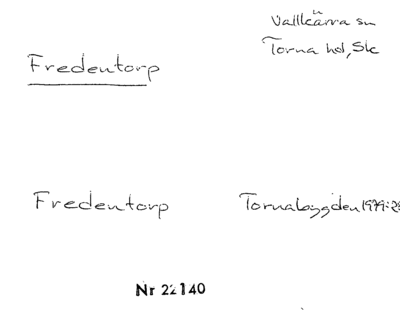 Vallkärra sn
Torna hd, Sk
Fredentorp
Fredentorp Tornabygden 1979:2
Nr 22140